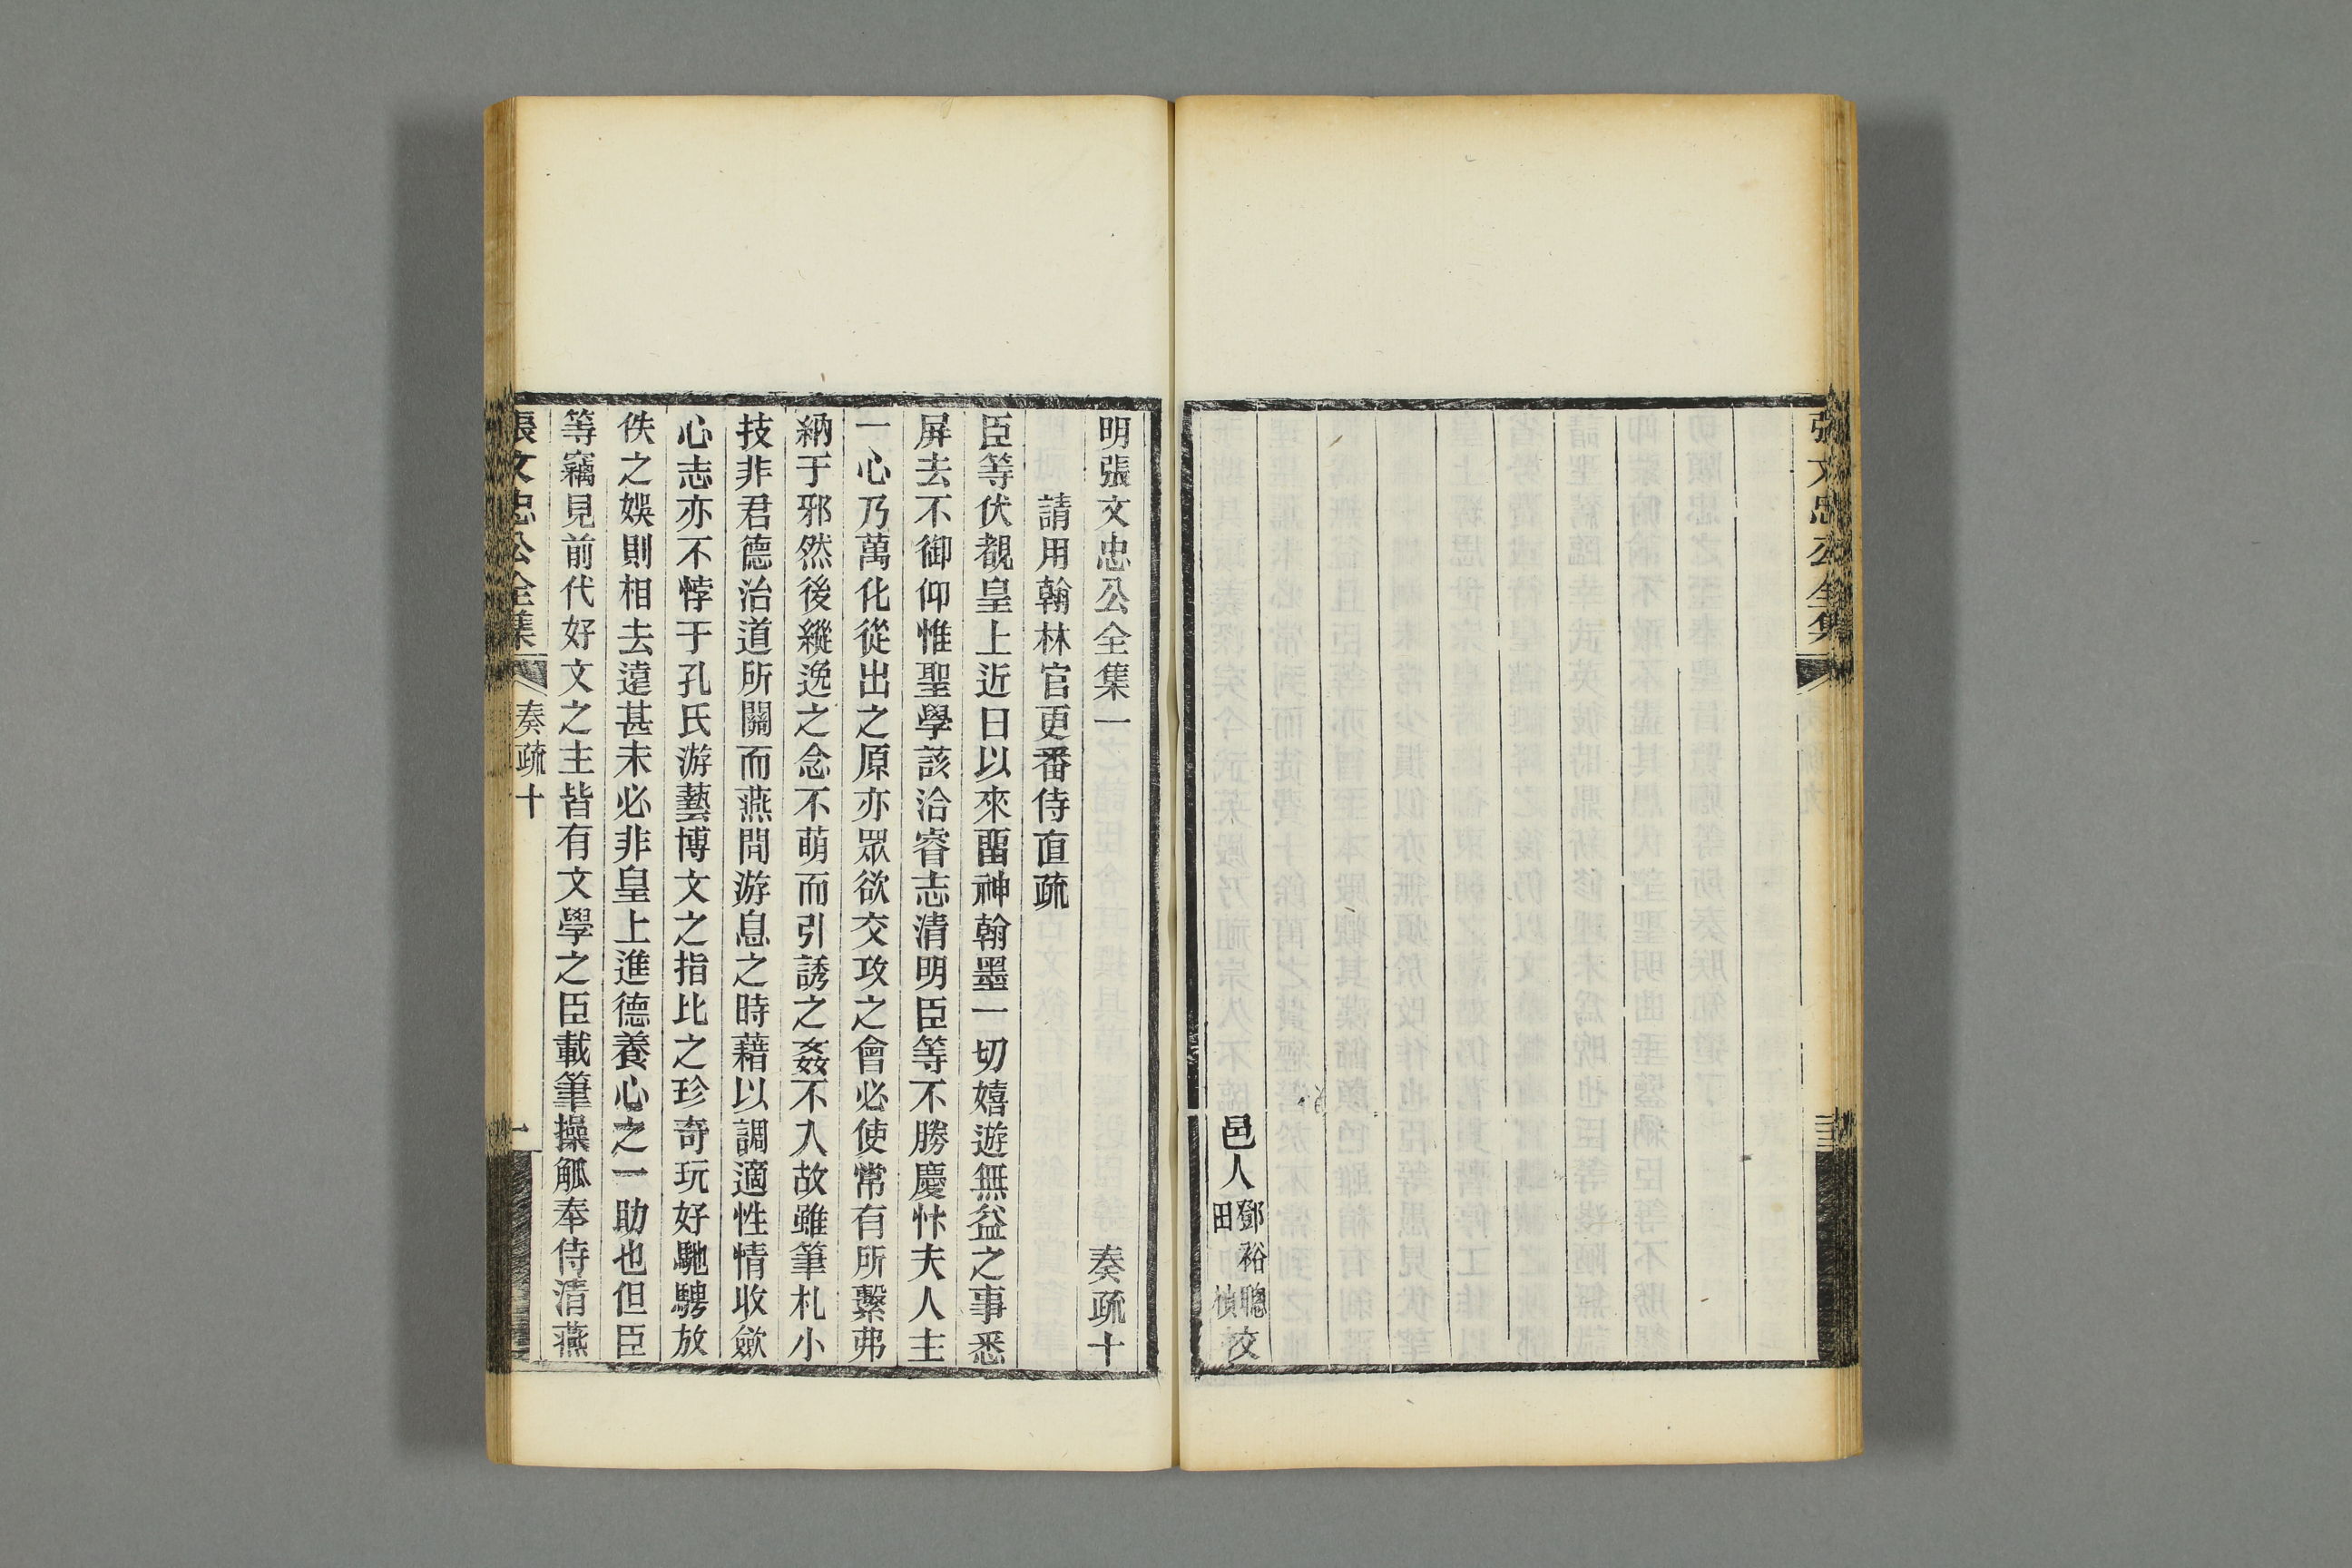 張文忠公全集
邑人鄧裕聰田楨校
明張文忠公全集一 奏疏十
請用翰林官更番侍直疏
臣等伏覩皇上近日以來畱神翰墨一切嬉遊無益之事悉
屏去不御仰惟聖學該洽睿志清明臣等不勝慶忭夫人主
一心乃萬化從出之原亦眾欲交攻之會必使常有所繫弗
納于邪然後縱逸之念不萌而引誘之姦不入故雖筆札小
技非君德治道所關而燕閒游息之時藉以調適性情收斂
心志亦不悖于孔氏游藝博文之指比之珍奇玩好馳騁放
佚之娛則相去遠甚未必非皇上進德養心之一助也但臣
等竊見前代好文之主皆有文學之臣載筆操觚奉侍清燕
張文忠公全集 奏疏十 一